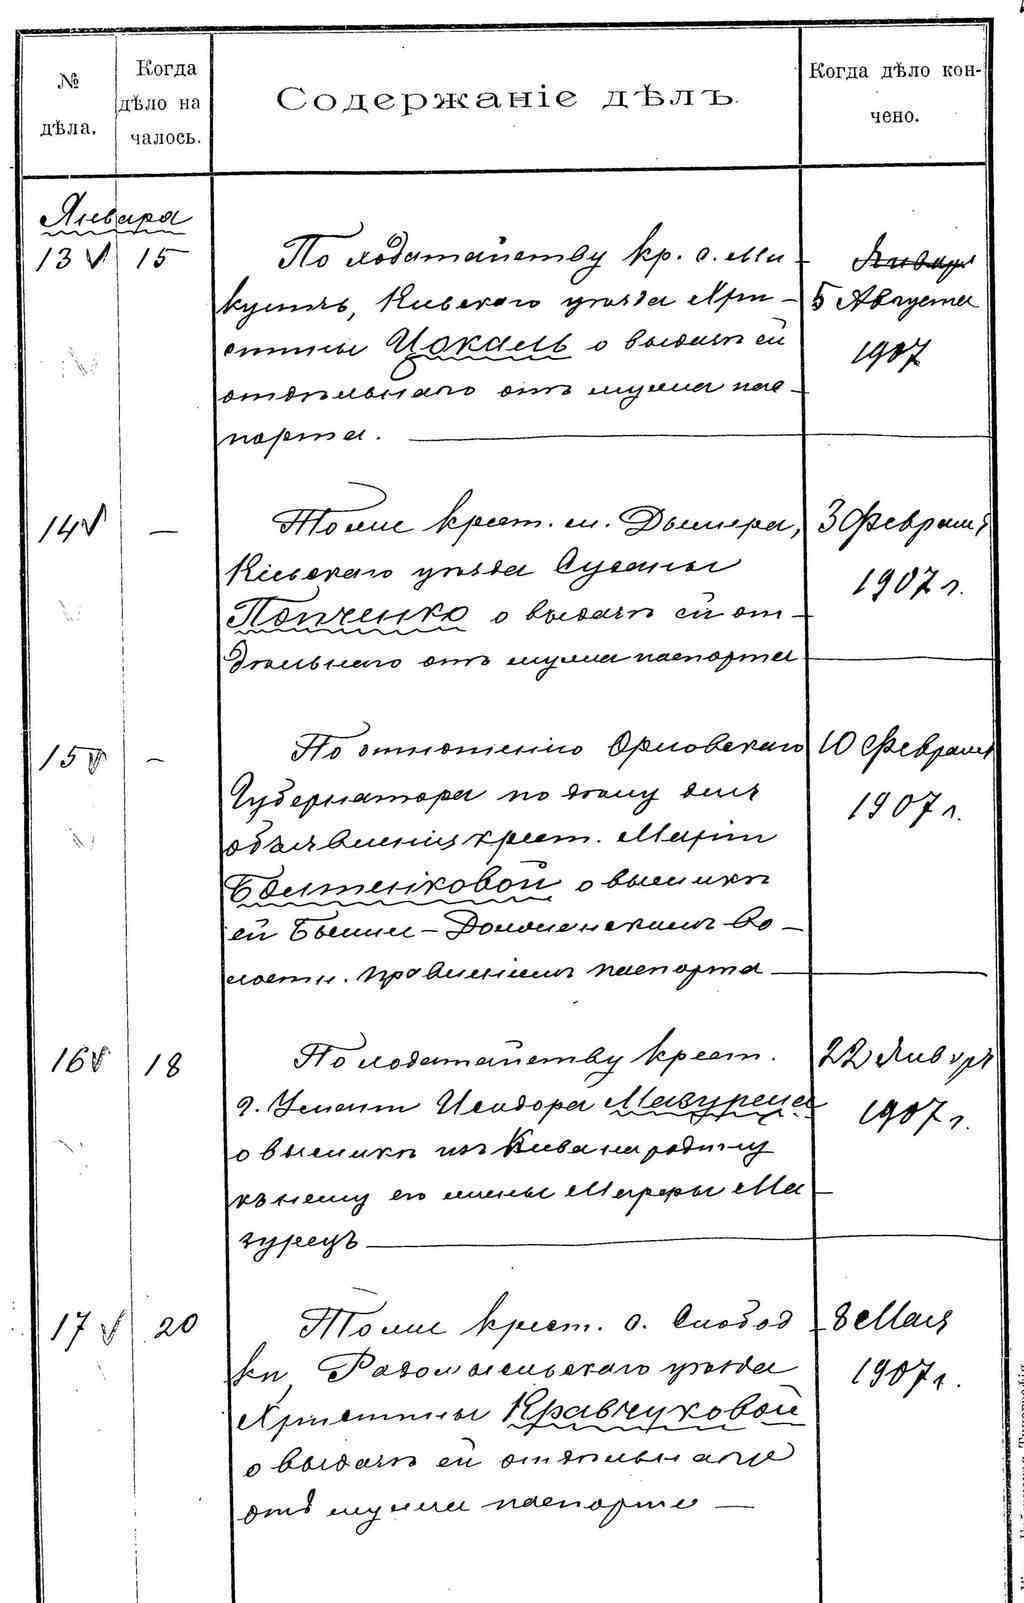 № дѣла.
Когда дѣло на чалось.
Содержаніе дѣлъ.
Когда дѣло кон- чено.
Января
13 V 15 По ходатайству кр. с. Ми-
кулич, Кіевскаго уѣзда Хри-
стины Цокаль о выдачѣ ей
отдѣльнаго отъ мужа пас-
порта.
Январ
5 Августа
1907
14 V — То же крест. м. Дымера,
Кіевскаго уѣзда Сусаны
Попченко о выдачѣ ей от-
дѣльнаго отъ мужа паспорта
3 Февраля
1907 г.
15 V — По отношенію Орловскаго
Губернатора по
объявленія крест. Маріи
о высылкѣ
ей Волостн. правленіемъ паспорта
10 Февраля
1907 г.
16 V 18 По ходатайству крест.
Исидора Мазуреца
о высылкѣ изъ Кіева на родину
къ нему его жены Марфы Ма-
зурецъ
22 Январ
1907 г.
17 V 20 То же крест. с. Слобод
ки, Радомысльскаго уѣзда
Христины Кравчуковой
о выдачѣ ей отдѣльнаго
отъ мужа паспорта —
8 Мая
1907 г.